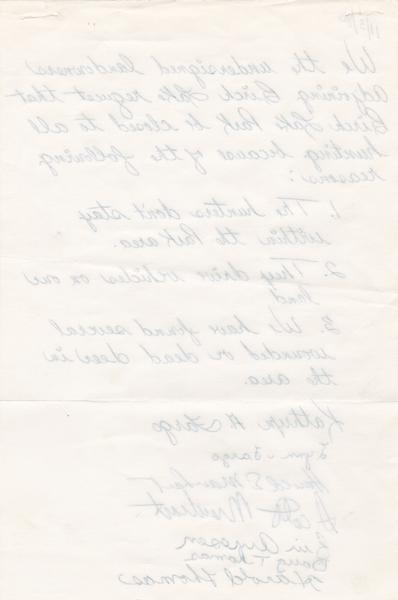 We the undersigned landowners
adjoining Birch Lake request that
Birch Lake Park be closed to all
hunting because of the following
reasons:
1. The hunters don't stay
within the Park area.
2. They drive vehicles on our
land
3. We have found several
wounded or dead deer in
the area.
Kathryn H Fargo
Lynn Fargo
Doug Thomas
Harold Thomas